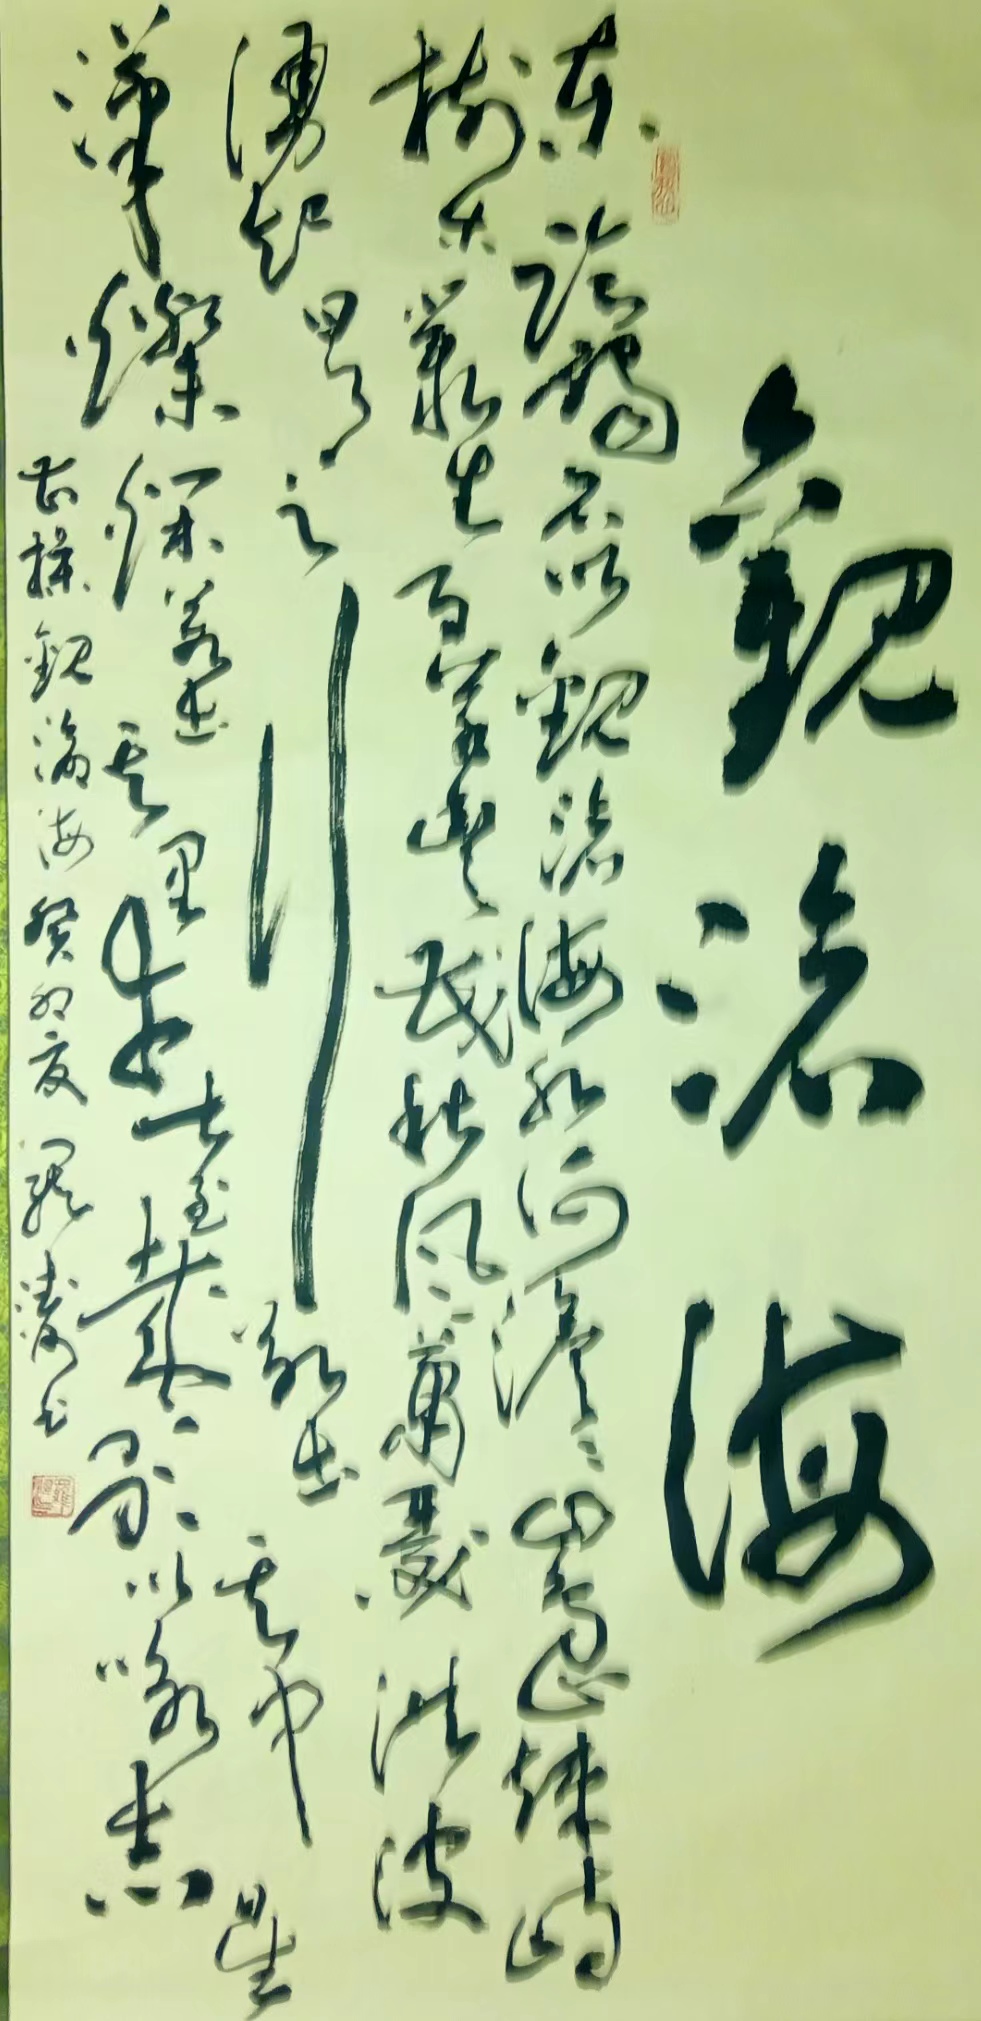 觀滄海
东臨碣石以觀滄海水何澹澹山島竦峙
樹木叢生百草豐茂秋风蕭瑟洪波
湧起日月之行若出其中星
漢燦爛若出其里幸甚至哉歌以詠志
曹操觀滄海癸卯夏